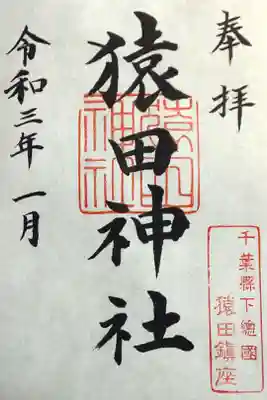 奉拝
猿田神社
令和三年一月
猿田神社
千葉縣下總國
猿田鎮座